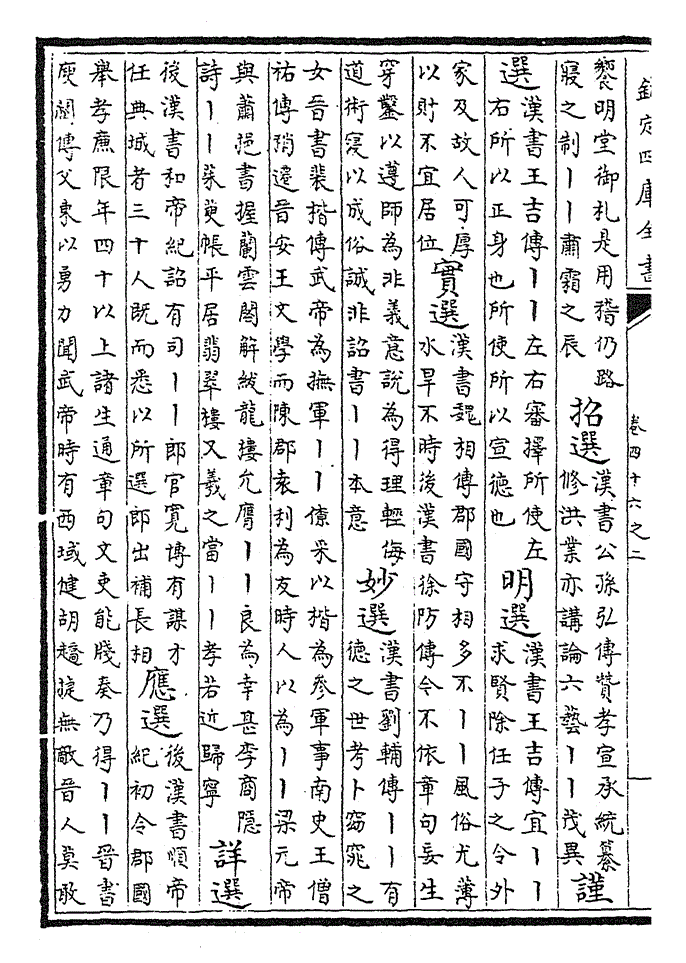 欽定四庫全書
卷四十六之二
饗明堂御札是用稽仍路
寢之制丨丨肅霜之辰
招選
漢書公孫弘傳贊孝宣承統纂
修洪業亦講論六藝丨丨茂異
謹
選
漢書王吉傳丨丨左右審擇所使左
右所以正身也所使所以宣徳也
明選
漢書王吉傳宜丨丨
求賢除任子之令外
家及故人可厚
以財不宜居位
實選
漢書魏相傳郡國守相多不丨丨風俗尤薄
水旱不時後漢書徐防傳令不依章句妄生
穿鑿以遵師為非義意說為得理輕侮
道術寖以成俗誠非詔書丨丨本意
妙選
漢書劉輔傳丨丨有
徳之世考卜窈窕之
女晉書裴楷傳武帝為撫軍丨丨僚采以楷為參軍事南史王僧
祐傳稍遷晉安王文學而陳郡袁利為友時人以為丨丨梁元帝
與蕭挹書握蘭雲閣解紱龍樓允膺丨丨良為幸甚李商隠
詩丨丨茱萸帳平居翡翠樓又羲之當丨丨孝若近歸寧
詳選
後漢書和帝紀詔有司丨丨郎官寛博有謀才
任典城者三十人既而悉以所選郎出補長相
應選
後漢書順帝
紀初令郡國
舉孝廉限年四十以上諸生通章句文吏能牋奏乃得丨丨晉書
庾闡傳父東以勇力聞武帝時有西域健胡趫捷無敵晉人莫敢